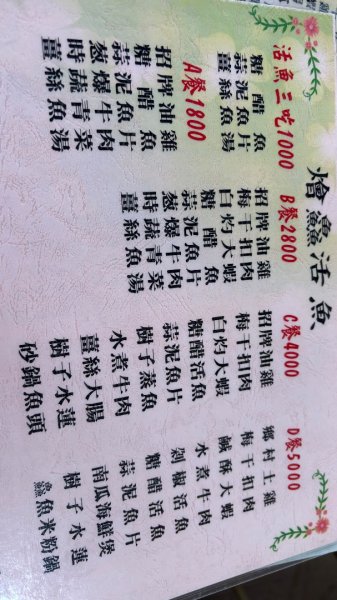 燴鱻活魚
活魚三吃1000
糖醋魚
蒜泥魚片
薑絲魚湯
A餐1800
招牌油雞
糖醋魚
蒜泥魚片
葱爆牛肉
時蔬青菜
薑絲魚湯
B餐2800
招牌油雞
梅干扣肉
白灼大蝦
糖醋魚
蒜泥魚片
葱爆牛肉
時蔬青菜
薑絲魚湯
C餐4000
招牌油雞
梅干扣肉
白灼大蝦
糖醋活魚
蒜泥魚片
樹子蒸魚
水煮牛肉
薑絲大腸
樹子水蓮
砂鍋魚頭
D餐5000
鄉村土雞
梅干扣肉
鹹酥大蝦
水煮牛肉
剁椒活魚
糖醋活魚
蒜泥魚片
南瓜海鮮煲
樹子水蓮
鱻魚米粉鍋